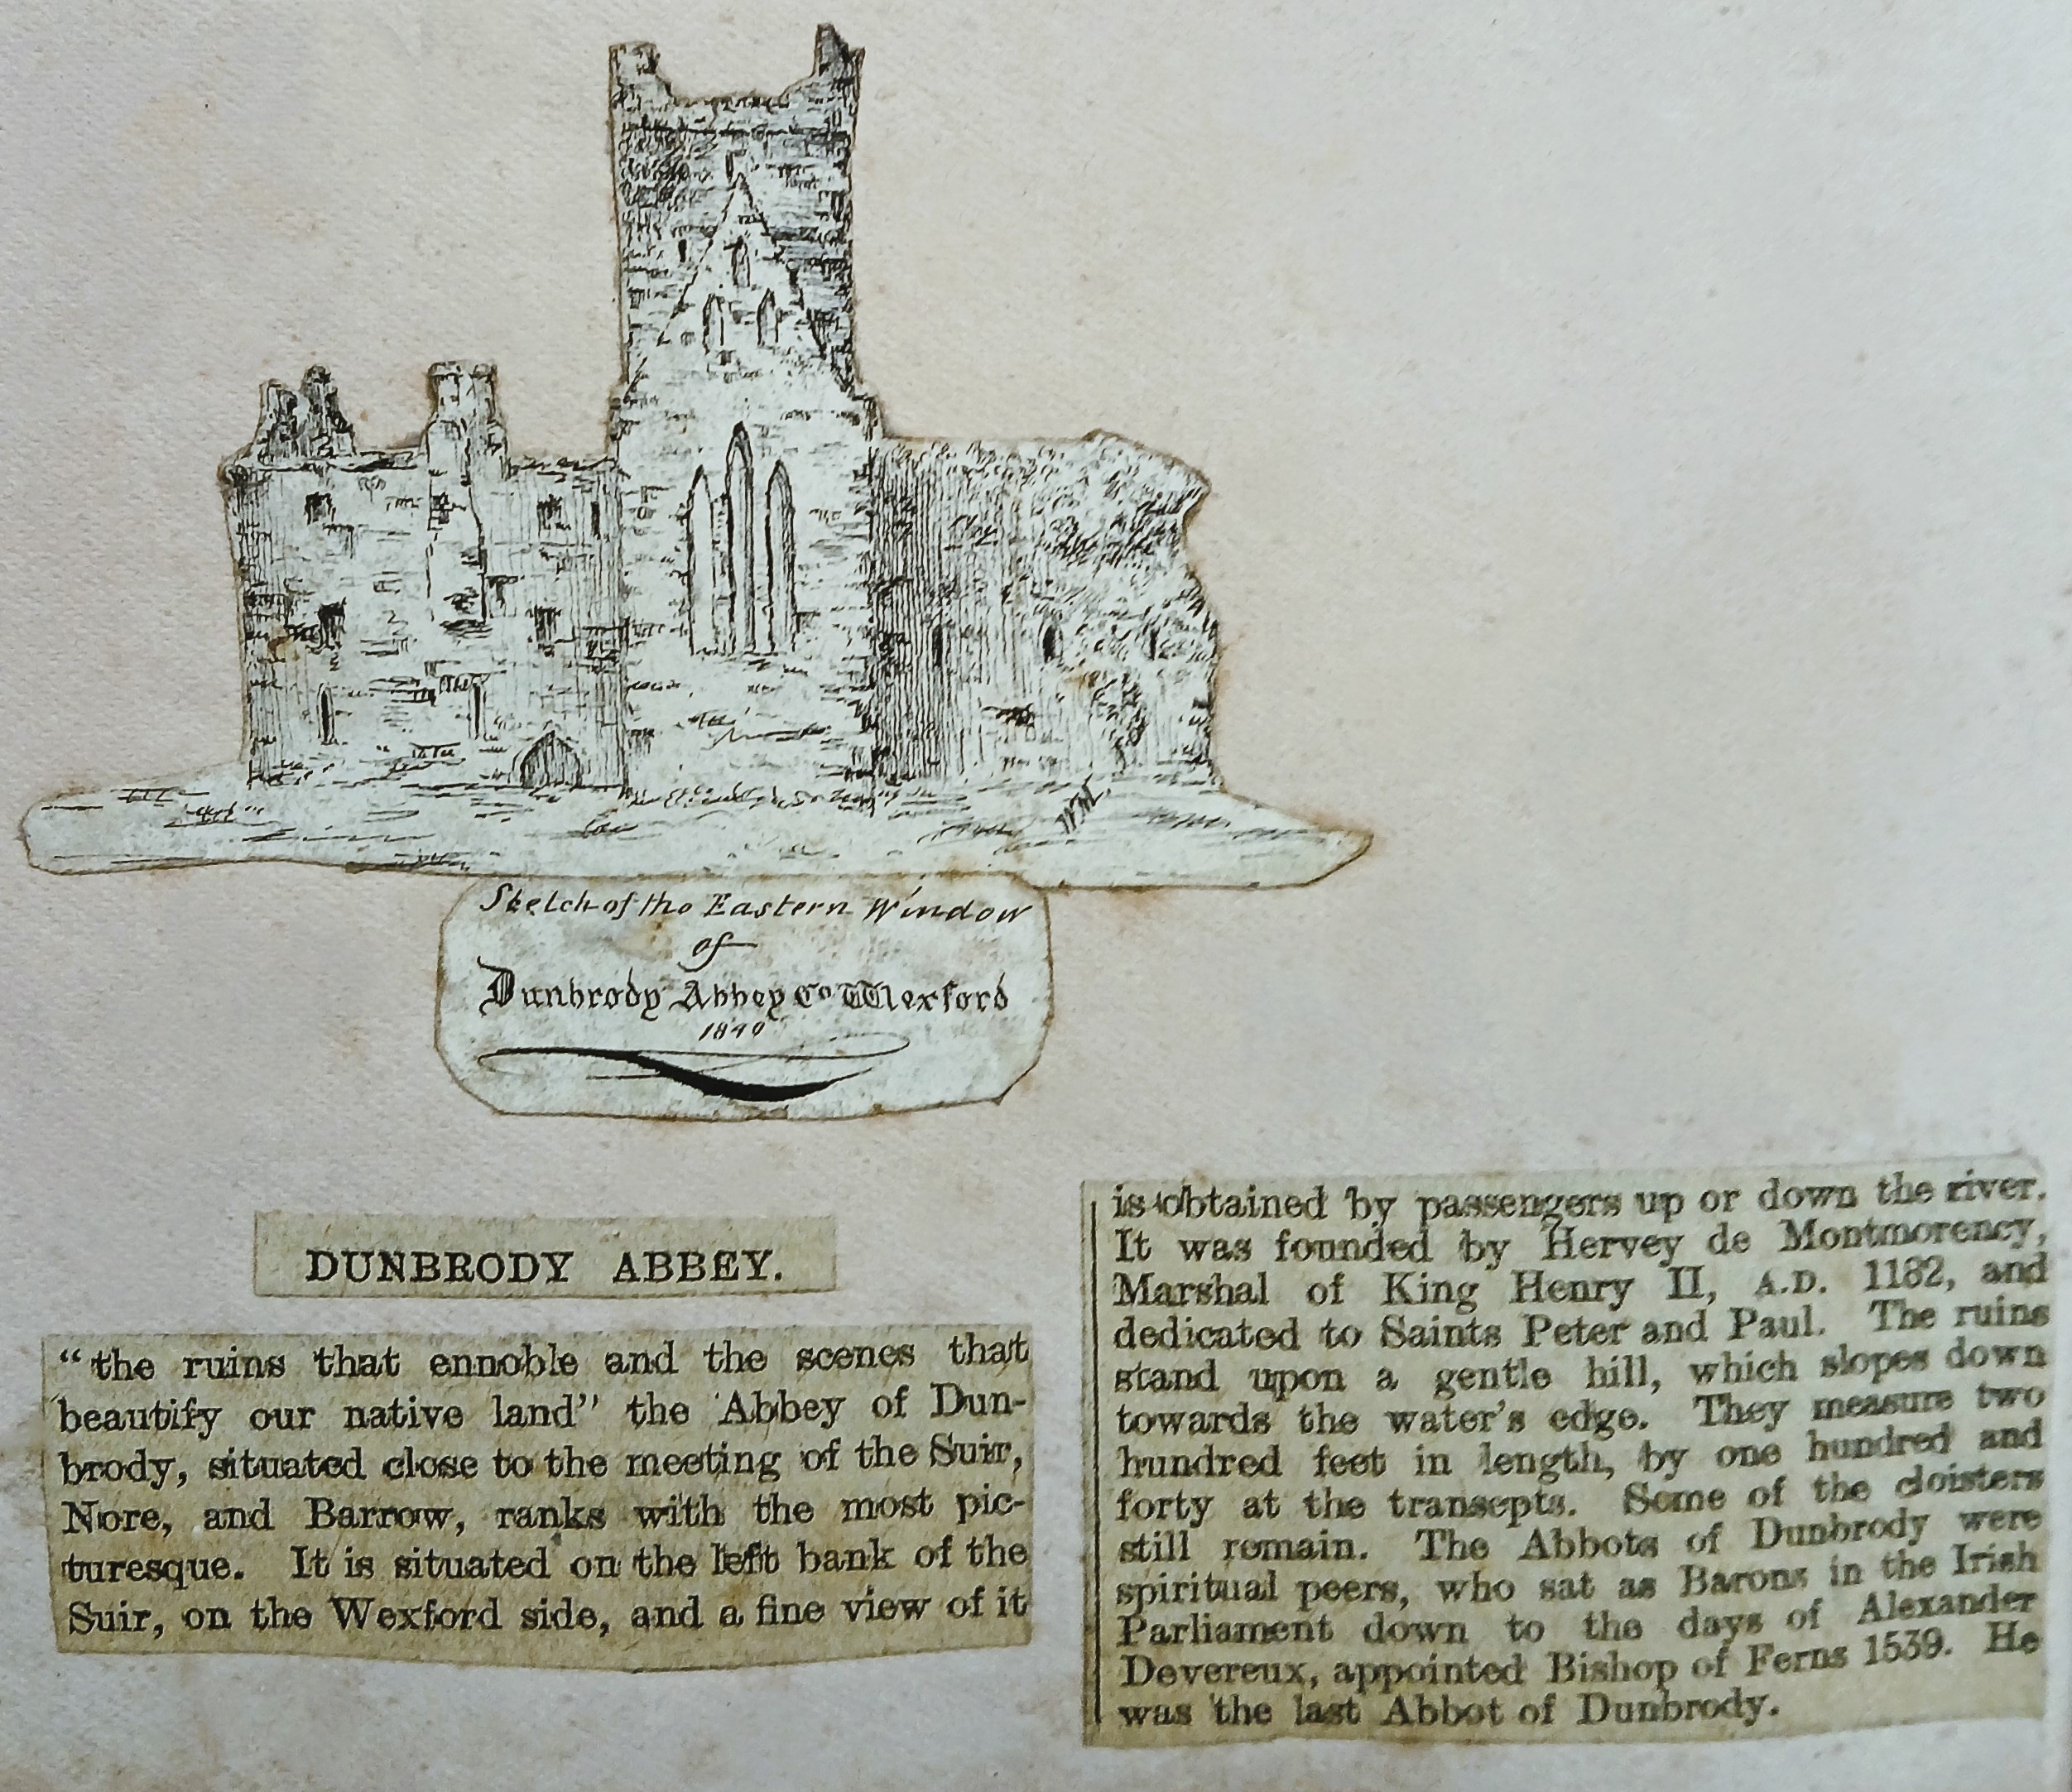 WM.
Sketch of the Eastern Window
of
Dunbrody Abbey Co Wexford
1840
DUNBRODY ABBEY.
"the ruins that ennoble and the scenes that
beautify our native land" the Abbey of Dun-
brody, situated close to the meeting of the Suir,
Nore, and Barrow, ranks with the most pic-
turesque. It is situated on the left bank of the
Suir, on the Wexford side, and a fine view of it
is obtained by passengers up or down the river.
It was founded by Hervey de Montmorency,
Marshal of King Henry II, A.D. 1182, and
dedicated to Saints Peter and Paul. The ruins
stand upon a gentle hill, which slopes down
towards the water's edge. They measure two
hundred feet in length, by one hundred and
forty at the transepts. Some of the cloisters
still remain. The Abbots of Dunbrody were
spiritual peers, who sat as Barons in the Irish
Parliament down to the days of Alexander
Devereux, appointed Bishop of Ferns 1539. He
was the last Abbot of Dunbrody.